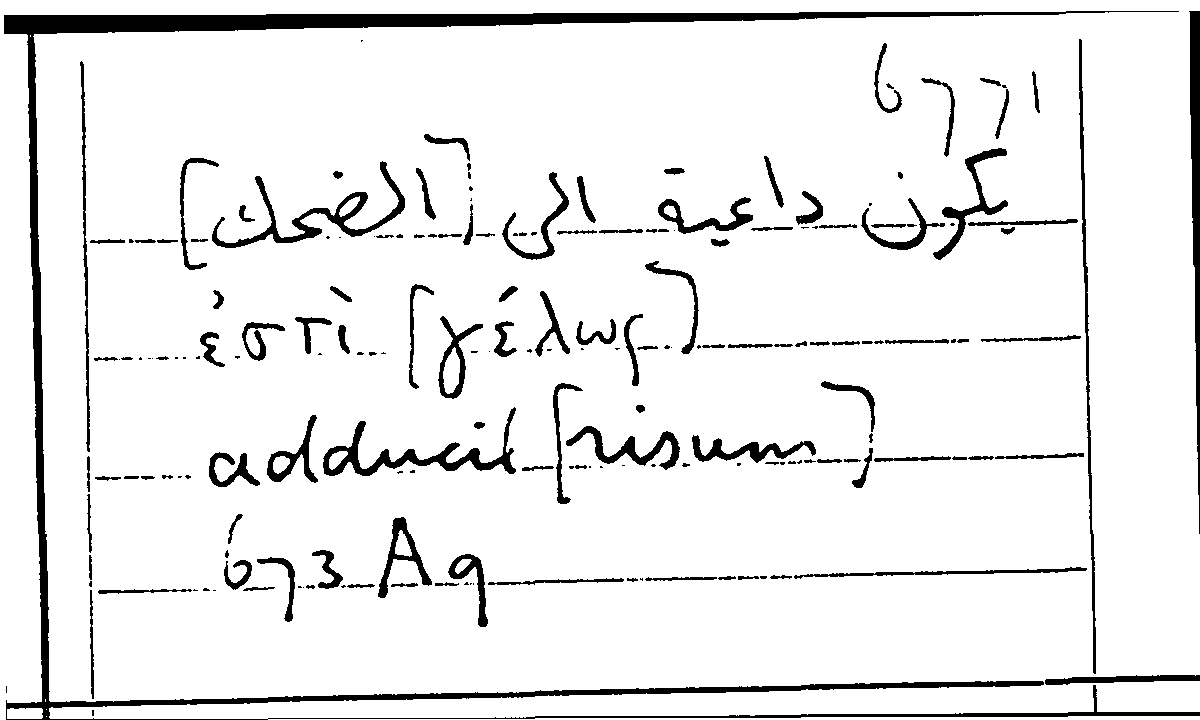 6771
يكون داعية الى [الضحك]
ἐστὶ [γέλως]
adducit [risum]
673 A9